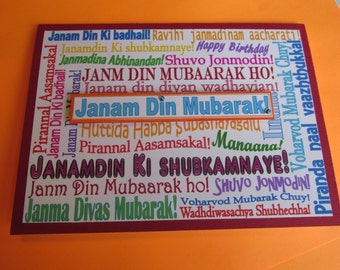 Janam Din Ki badhaii!
Ravihi janmadinam aacharati
Janamdin Ki shubkamnaye!
Happy Birthday
Janmadina Abhinandan!
Shuvo Jonmodin!
JANM DIN MUBAARAK HO!
janam din diyan wadhayian
Janam Din Mubarak!
Huttida Habba Subashayagalu
Pirannal Aasamsakal!
Manaana!
JANAMDIN KI SHUBKAMNAYE!
Janm Din Mubaarak ho!
Shuvo Jonmodin!
Janma Divas Mubarak!
Voharvod Mubarak Chuy!
Wadhdiwasachya Shubhechha!
Pirannal Aasamsakal!
Janam Din Ki badhaii!
Voharvod Mubarak Chuy!
Piranda naal vaazhthukkal